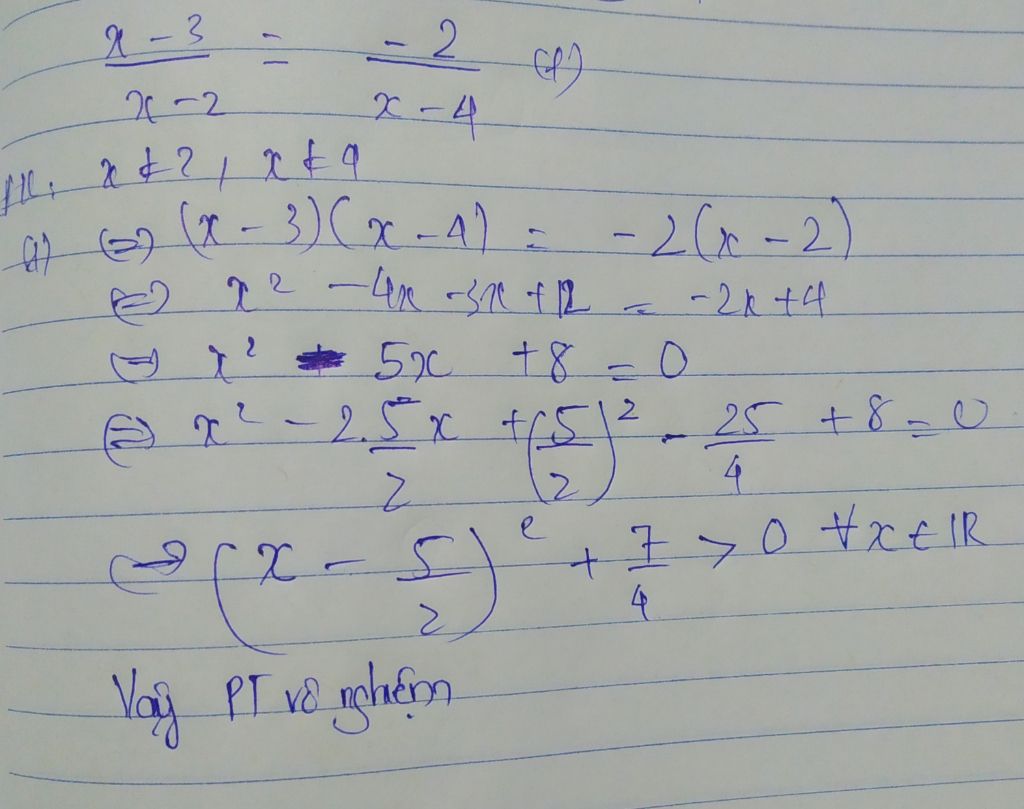 x - 3 / x - 2 = - 2 / x - 4 (1)
ĐK: x ≠ 2, x ≠ 4
(1) ⇔ (x - 3)(x - 4) = - 2(x - 2)
⇔ x² - 4x - 3x + 12 = -2x + 4
⇔ x² - 5x + 8 = 0
⇔ x² - 2.5/2 x + (5/2)² - 25/4 + 8 = 0
⇔ (x - 5/2)² + 7/4 > 0 ∀x ∈ R
Vậy PT vô nghiệm